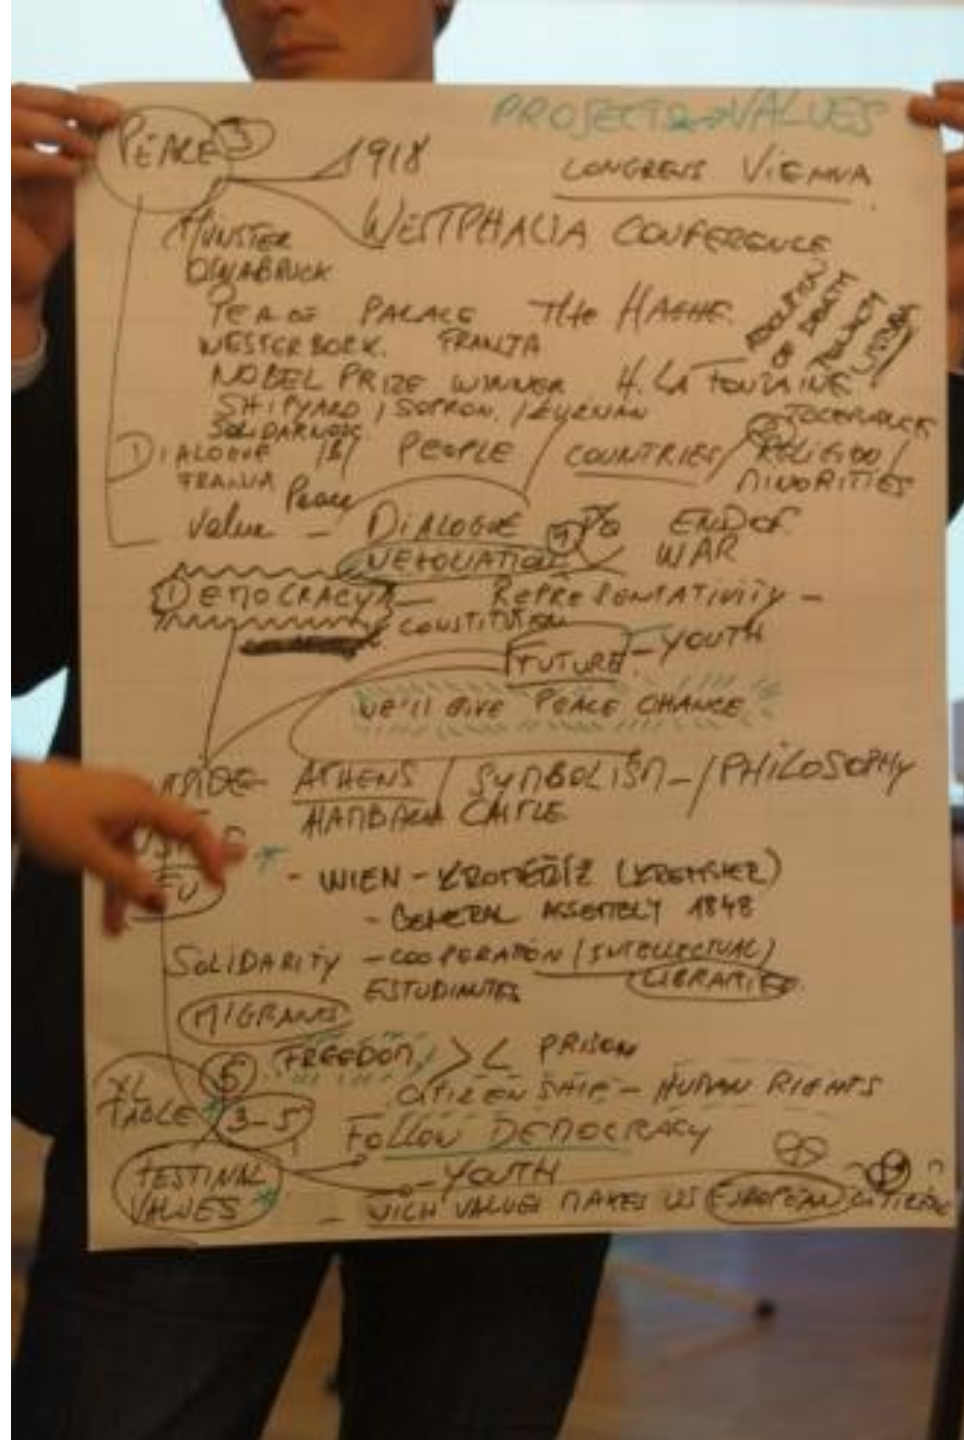 PROJECTS VALUES
PEACE 3
1918
CONGRESS VIENNA
MÜNSTER
WESTPHALIA CONFERENCE
OSNABRUCK
PEACE PALACE THE HAGHE
ABOLITION OF DEATH
WESTERBORK. FRANJA
NOBEL PRIZE WINNER H. LA FONTAINE
SHIPYARD / SOPRON. /
SOLIDARNOSC
TOLERANCE
DIALOGUE PEOPLE / COUNTRIES / RELIGION /
MINORITIES
FRANJA
Peace
Value - DIALOGUE
END OF
WAR
NEGOTIATION
DEMOCRACY - REPRESENTATIVITY -
CONSTITUTION
FUTURE - YOUTH
WE'll GIVE PEACE CHANCE
ATHENS / SYMBOLISM - / PHILOSOPHY
HAMBACH CASTLE
EU
- WIEN - KROMĚŘÍŽ (KREMSIER)
- GENERAL ASSEMBLY 1848
SOLIDARITY - COOPERATION / (INTELLECTUAL)
ESTUDIANTES
LIBRARIES
MIGRANS
5 FREEDOM >< PRISON
CITIZENSHIP - HUMAN RIGHTS
XL
TABLE 3-5
FOLLOW DEMOCRACY
- YOUTH
VALUES
- WICH VALUES MAKES US EUROPEAN CITIZENS